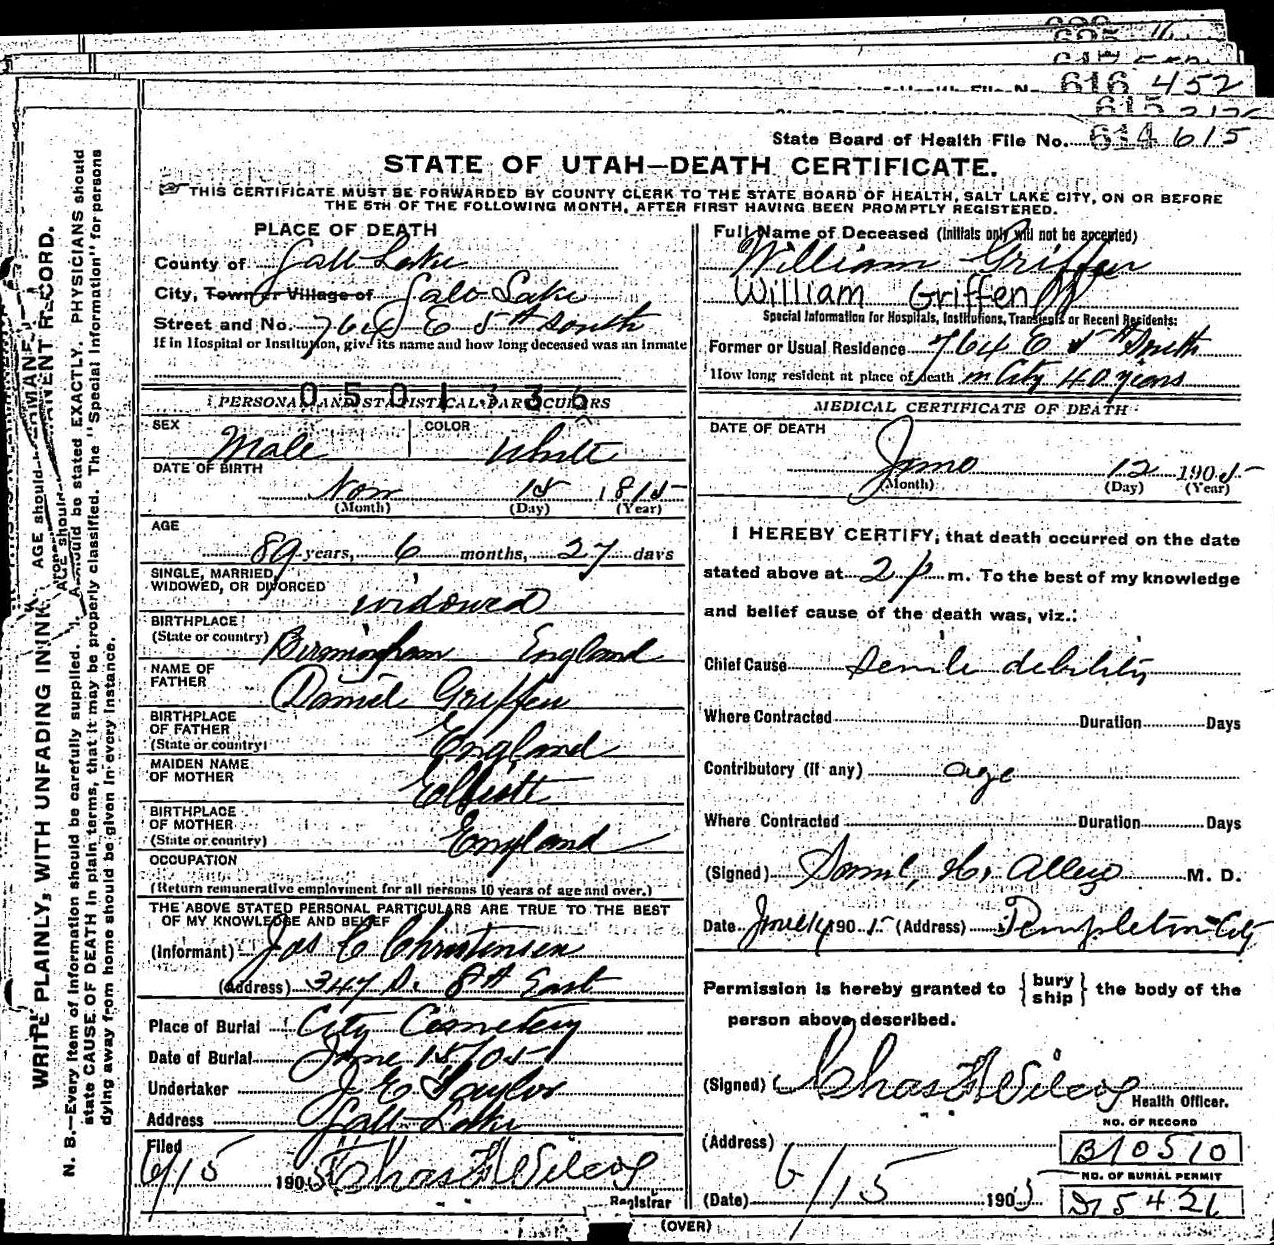 616 452
615
State Board of Health File No. 614 615
STATE OF UTAH—DEATH CERTIFICATE.
THIS CERTIFICATE MUST BE FORWARDED BY COUNTY CLERK TO THE STATE BOARD OF HEALTH, SALT LAKE CITY, ON OR BEFORE
THE 5TH OF THE FOLLOWING MONTH, AFTER FIRST HAVING BEEN PROMPTLY REGISTERED.
WRITE PLAINLY, WITH UNFADING INK
RECORD.
N. B.—Every item of information should be carefully supplied. AGE should be stated EXACTLY. PHYSICIANS should
state CAUSE OF DEATH in plain terms, that it may be properly classified. The "Special Information" for persons
dying away from home should be given in every instance.
PLACE OF DEATH
County of Salt Lake
City, Town or Village of Salt Lake
Street and No. 764 E 5th South
If in Hospital or Institution, give its name and how long deceased was an Inmate
0501336
PERSONAL AND STATISTICAL PARTICULARS
SEX Male COLOR White
DATE OF BIRTH
Nov 15 1815
(Month) (Day) (Year)
AGE
89 years, 6 months, 27 days
SINGLE, MARRIED,
WIDOWED, OR DIVORCED widowed
BIRTHPLACE
(State or country) Birmingham England
NAME OF
FATHER Daniel Griffen
BIRTHPLACE
OF FATHER
(State or country) England
MAIDEN NAME
OF MOTHER Elliott
BIRTHPLACE
OF MOTHER
(State or country) England
OCCUPATION
(Return remunerative employment for all persons 10 years of age and over.)
THE ABOVE STATED PERSONAL PARTICULARS ARE TRUE TO THE BEST
OF MY KNOWLEDGE AND BELIEF
(Informant) Jas C Christensen
(Address) 347 S. 8th East
Place of Burial City Cemetery
Date of Burial June 15/05
Undertaker J E Taylor
Address Salt Lake
Filed
6/15 1905 Chas F Wilcox
Registrar
Full Name of Deceased (Initials only will not be accepted)
William Griffen
William Griffen
Special Information for Hospitals, Institutions, Transients or Recent Residents:
Former or Usual Residence 764 E 5th South
How long resident at place of death in City 40 years
MEDICAL CERTIFICATE OF DEATH
DATE OF DEATH
June 12 1905
(Month) (Day) (Year)
I HEREBY CERTIFY, that death occurred on the date
stated above at 2 p m. To the best of my knowledge
and belief cause of the death was, viz.:
Chief Cause senile debility
Where Contracted Duration Days
Contributory (if any) age
Where Contracted Duration Days
(Signed) Saml. H. Allen M. D.
Date June 14 1905 (Address) Templeton City
Permission is hereby granted to { bury ship } the body of the
person above described.
(Signed) Chas F Wilcox
Health Officer.
(Address)
NO. OF RECORD
B10510
NO. OF BURIAL PERMIT
D15421
(Date) 6/15 1905
(OVER)